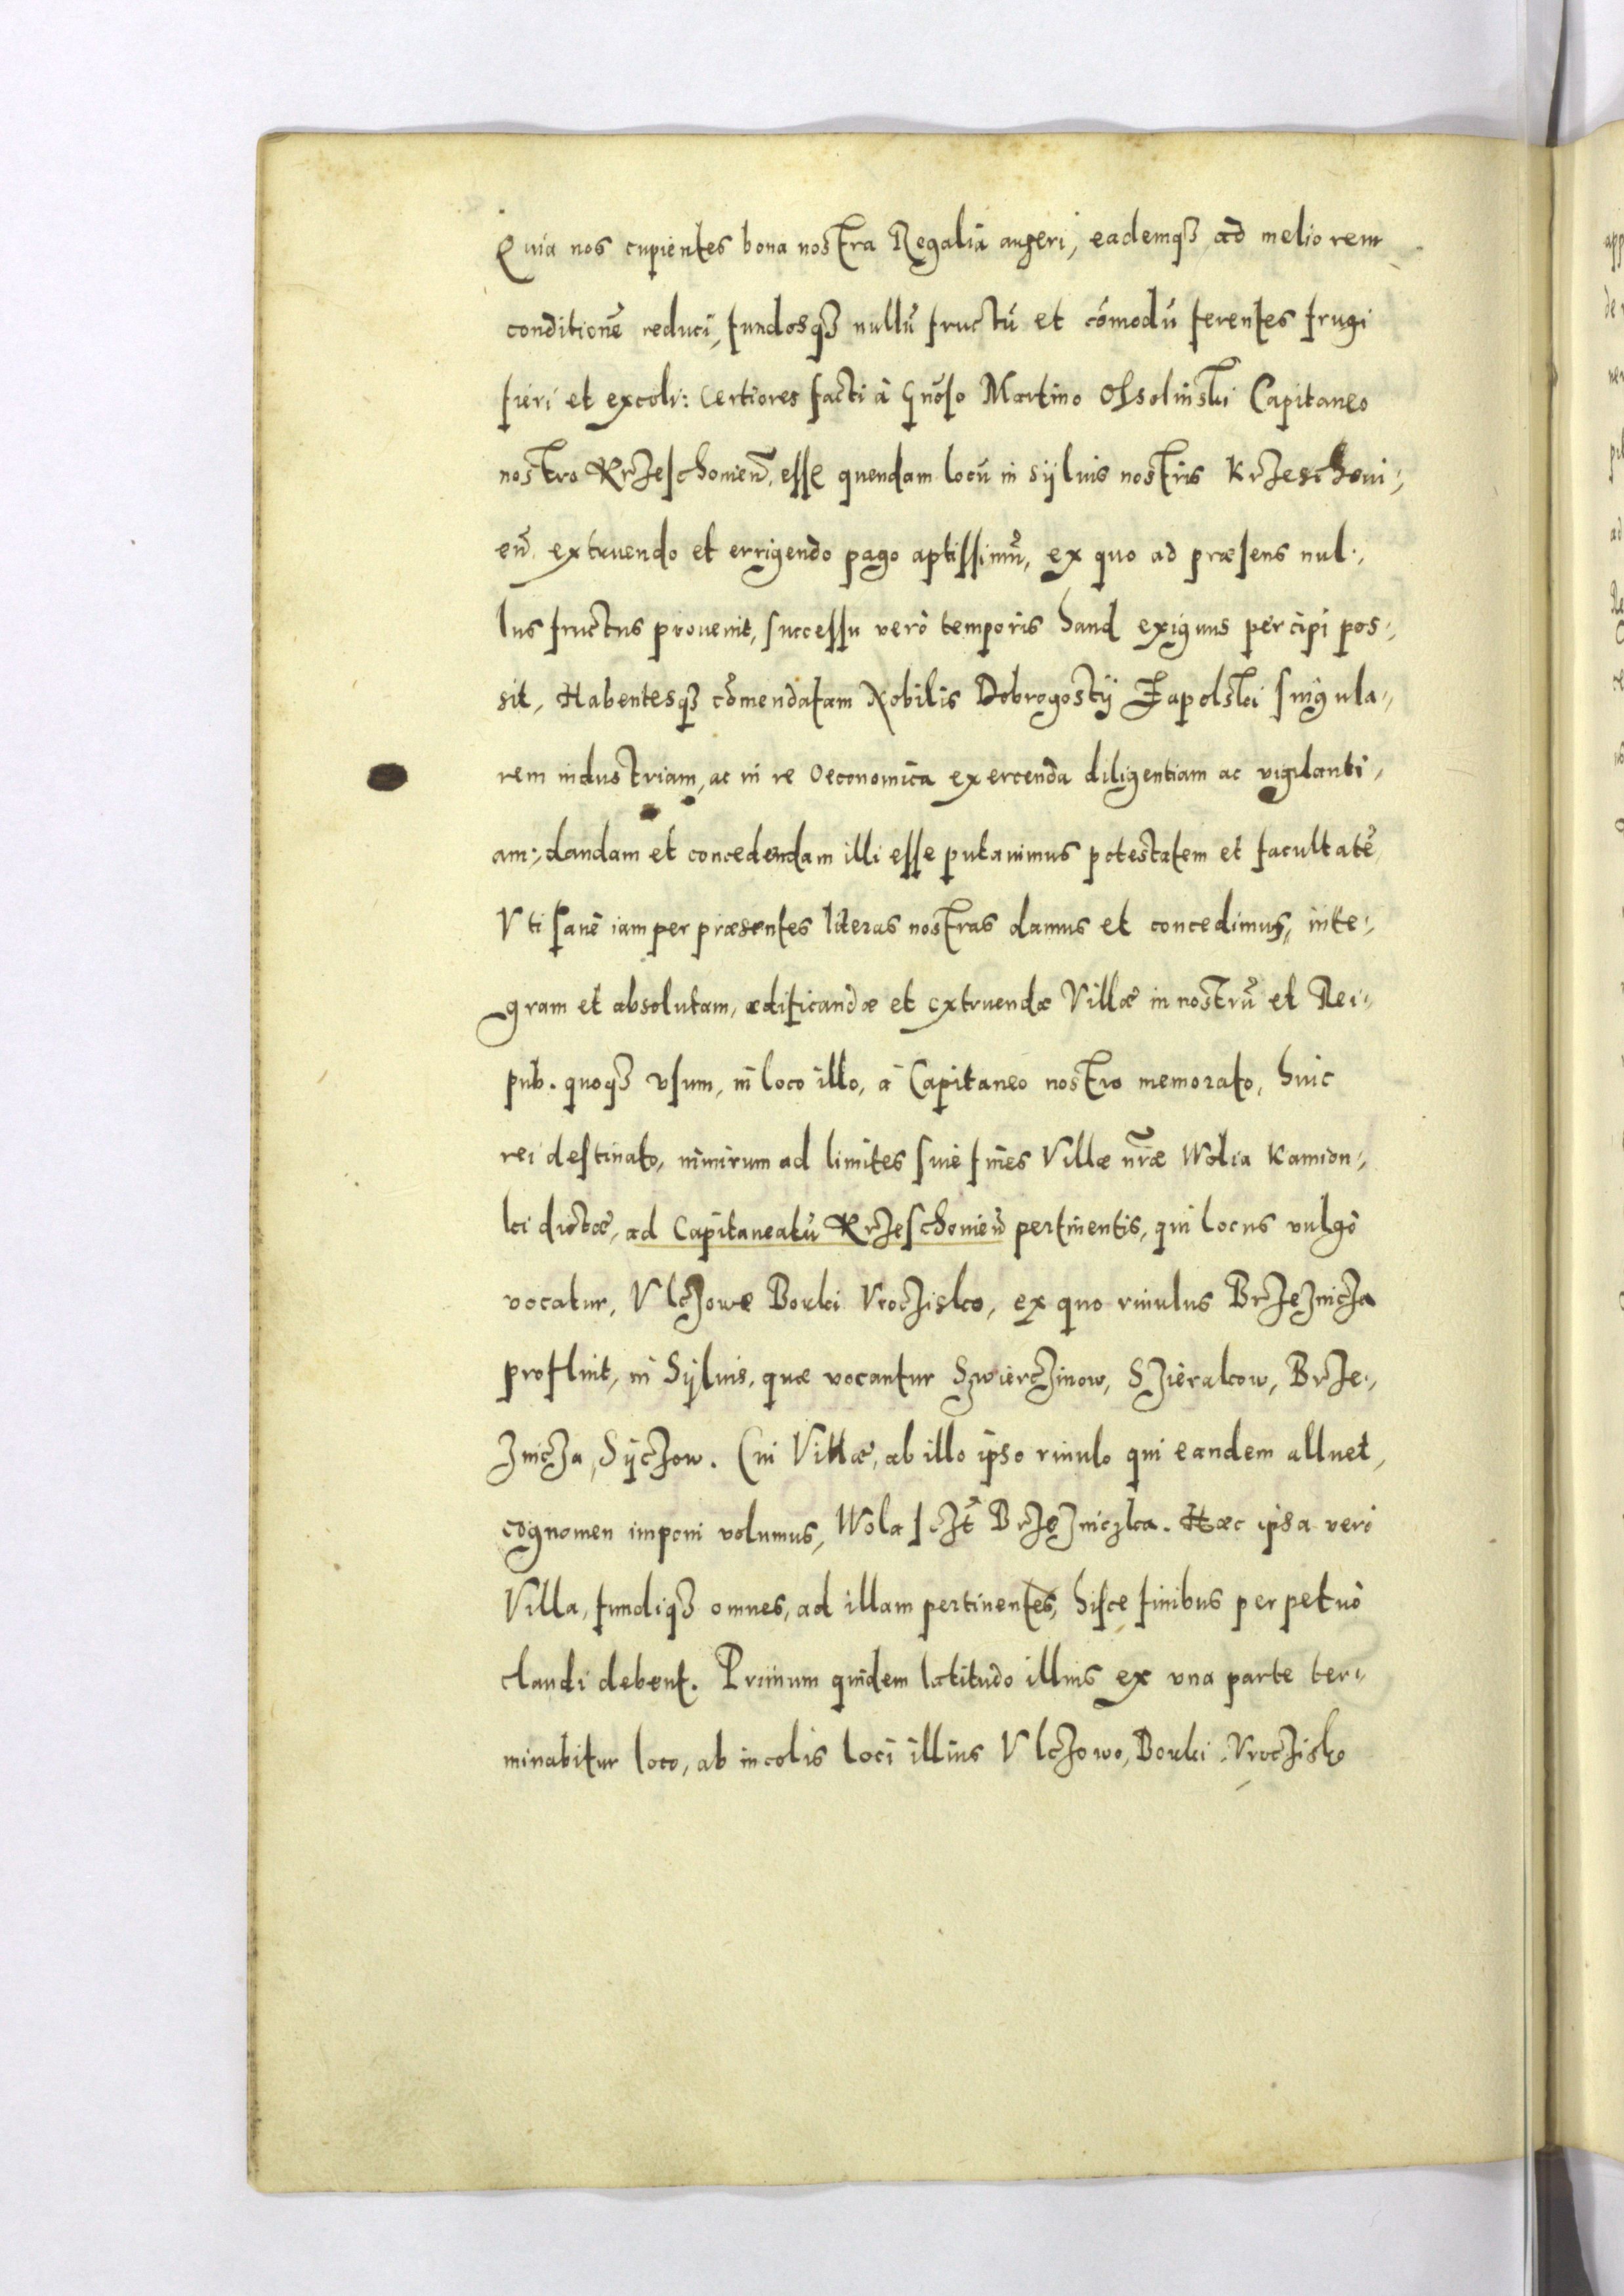 Quia nos cupientes bona nostra Regalia augeri, eademq3 ad meliorem
conditionē reduci, fundosq3 nullū fructū et cōmodū ferentes frugi
fieri et excoli: Certiores facti à Gnōso Martino Ossolinski Capitaneo
nostro Krzeschouień. esse quendam locū in syluis nostris Krzeschoui-,
eń. extruendo et errigendo pago aptissimū, ex quo ad præsens nul-
lus fructus prouenit, successu verò temporis haud exiguus percipi pos-,
sit, Habentesq3 cōmendatam Nobilis Dobrogostij Zapolski singula-,
rem industriam, ac in re Oeconomica exercenda diligentiam ac vigilanti-,
am:, dandam et concedendam illi esse putauimus potestatem et facultatē,
Vti sanè iam per præsentes literas nostras damus et concedimus, inte-,
gram et absolutam, ædificandæ et extruendæ Villæ in nostrū et Rei-,
pub. quoq3 vsum, in loco illo, à Capitaneo nostro memorato, huic
rei destinato, nimirum ad limites siue fines Villæ nr̄æ Wolia Kamion-,
ki dictæ, ad Capitaneatū Krzeschouień pertinentis, qui locus vulgò
vocatur, Vlczowe Borki Vroczisko, ex quo riuulus Brzezniczа
profluit, in Syluis, quæ vocantur Szwierczinow, Szierakow, Brze-,
znicza, Syczow. Cui Villæ, ab illo ipso riuulo qui eandem alluet,
cognomen imponi volumus, Wola sczt̄ Brzezniczka. Hæc ipsa verò
Villa, fundiq3 omnes, ad illam pertinentes, hisce finibus perpetuò
claudi debent. Primum quidem latitudo illius ex vna parte ter-,
minabitur loco, ab incolis loci illius Vlczowo, Borki Vroczisko